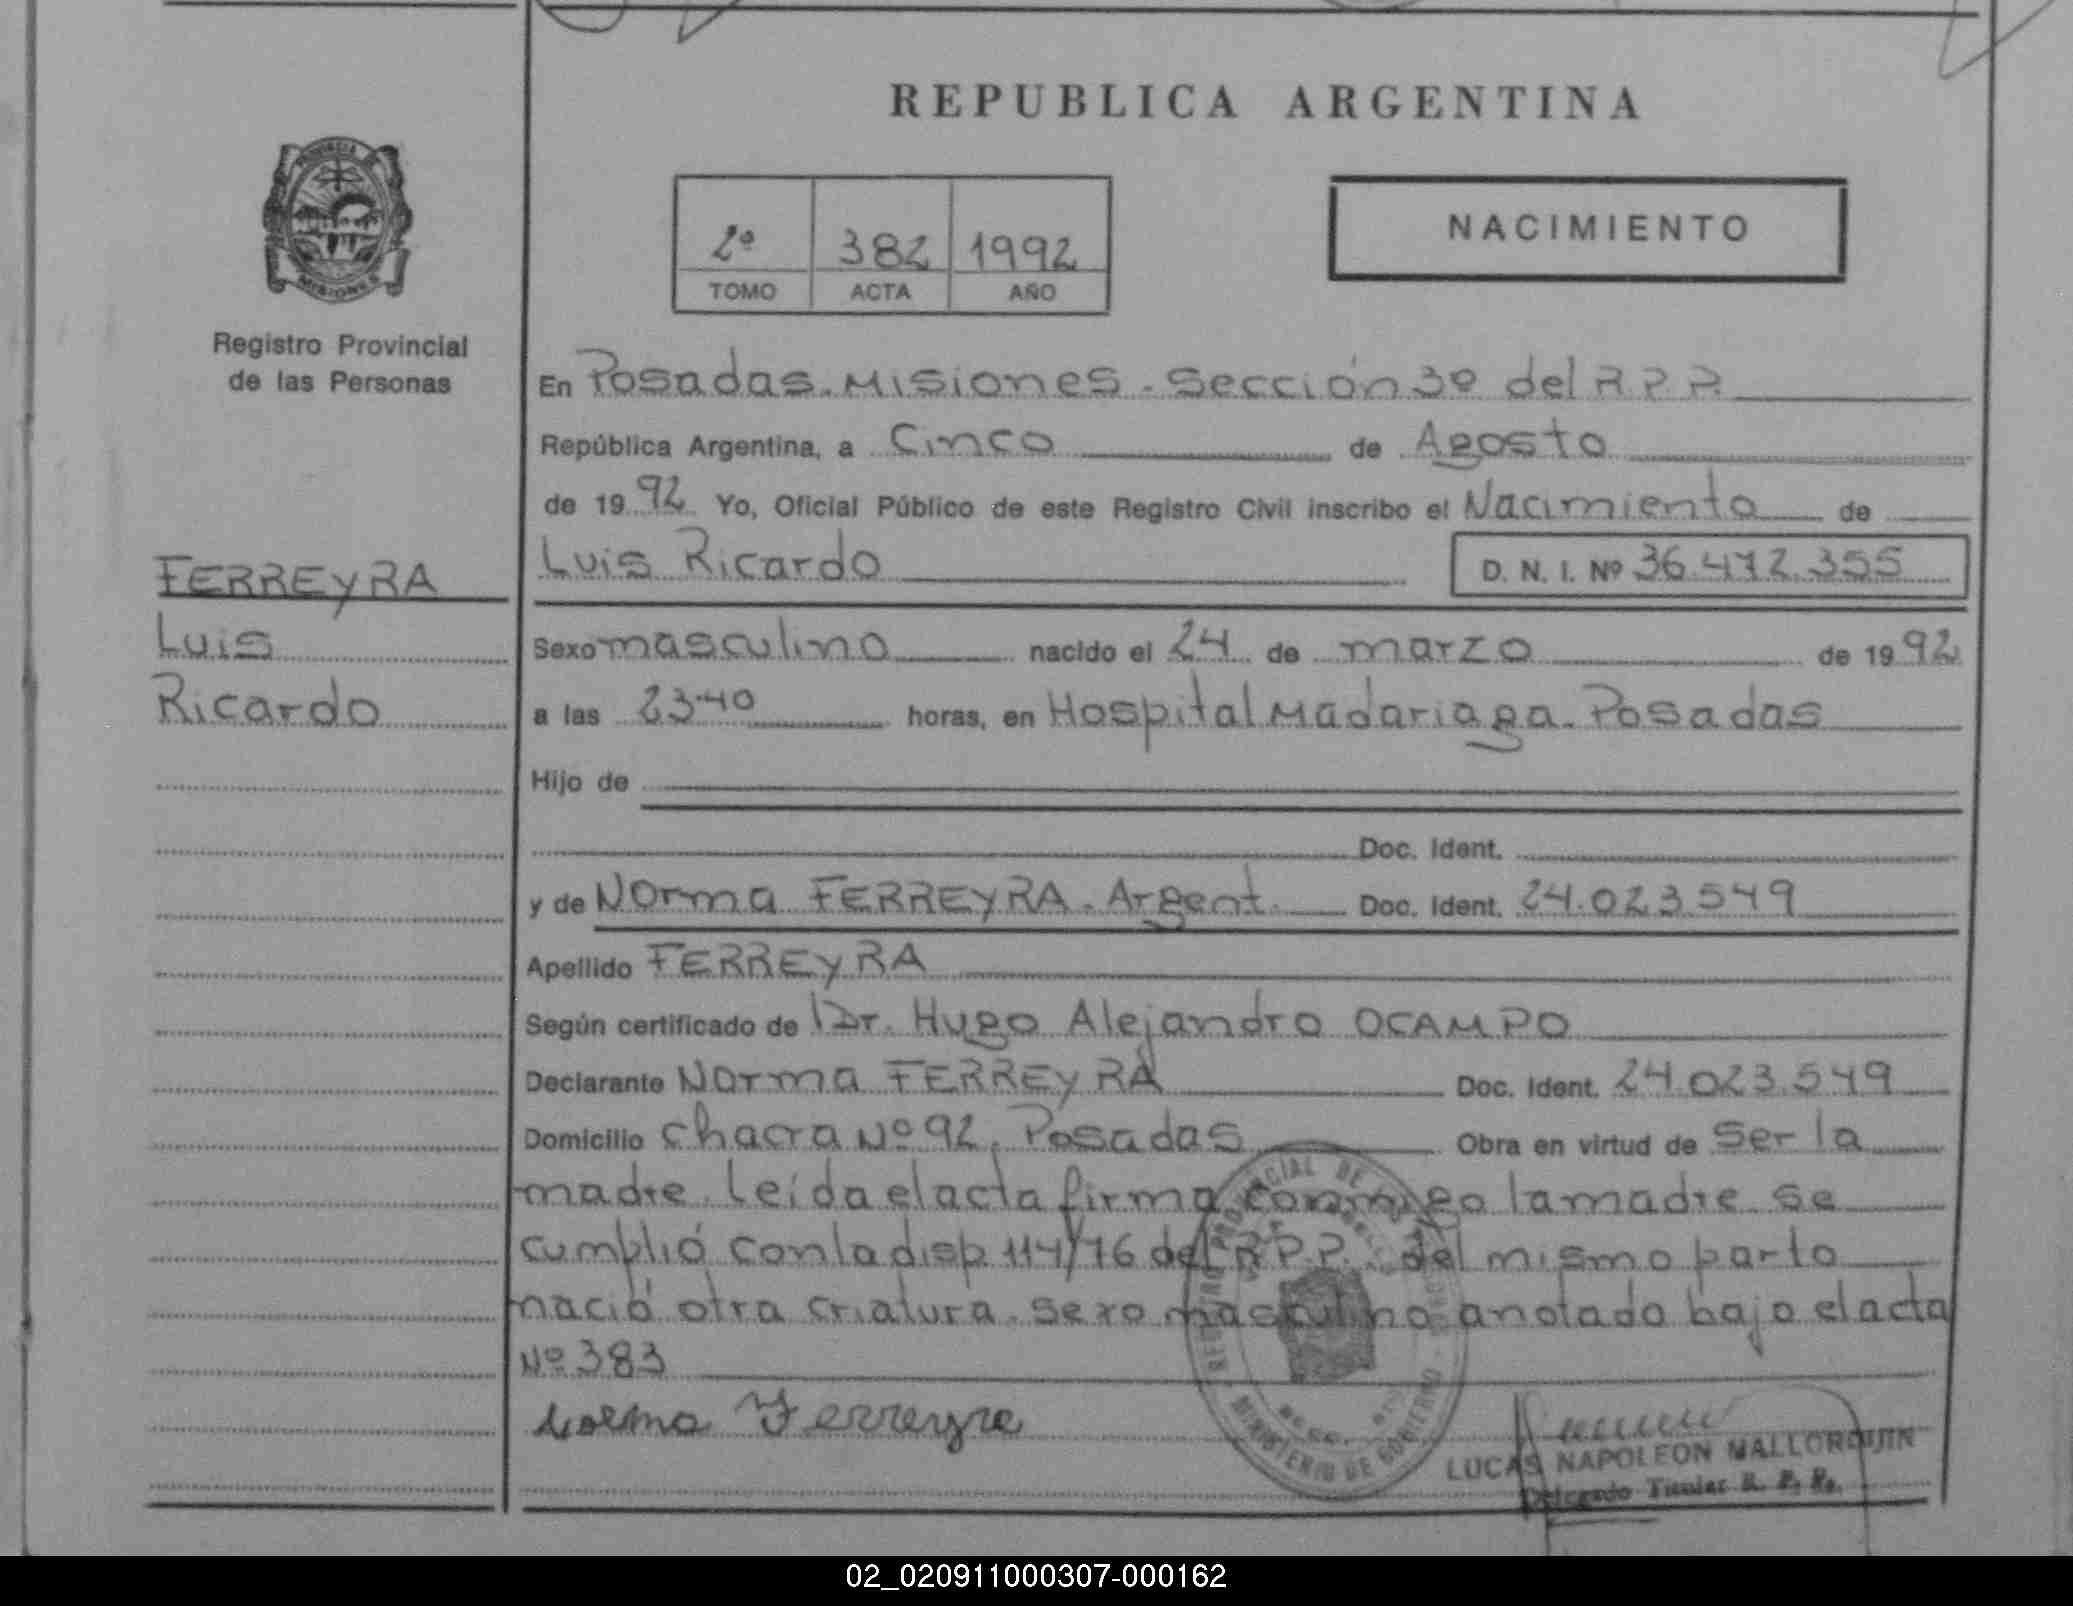 REPUBLICA ARGENTINA
PROVINCIA DE
MISIONES
Registro Provincial
de las Personas
2º 382 1992
TOMO ACTA AÑO
NACIMIENTO
En Posadas. Misiones. Sección 3º del R.P.P.
República Argentina, a Cinco de Agosto
de 1992 Yo, Oficial Público de este Registro Civil inscribo el Nacimiento de
Luis Ricardo D. N. I. Nº 36.472.355
FERREYRA
Luis
Ricardo
Sexo masculino nacido el 24 de marzo de 1992
a las 23.40 horas, en Hospital Madariaga. Posadas
Hijo de
Doc. Ident.
y de Norma FERREYRA. Argent. Doc. Ident. 24.023.549
Apellido FERREYRA
Según certificado de Dr. Hugo Alejandro OCAMPO
Declarante Norma FERREYRA Doc. Ident. 24.023.549
Domicilio Chacra Nº 92. Posadas Obra en virtud de ser la
madre. Leída el acta firma conmigo la madre se
cumplió con la disp. 114/76 del R.P.P. del mismo parto
nació otra criatura. sexo masculino anotado bajo el acta
Nº 383
Norma Ferreyra
MINISTERIO DE GOBIERNO
LUCAS NAPOLEON MALLORQUIN
Delegado Titular R. P. P.
02_020911000307-000162